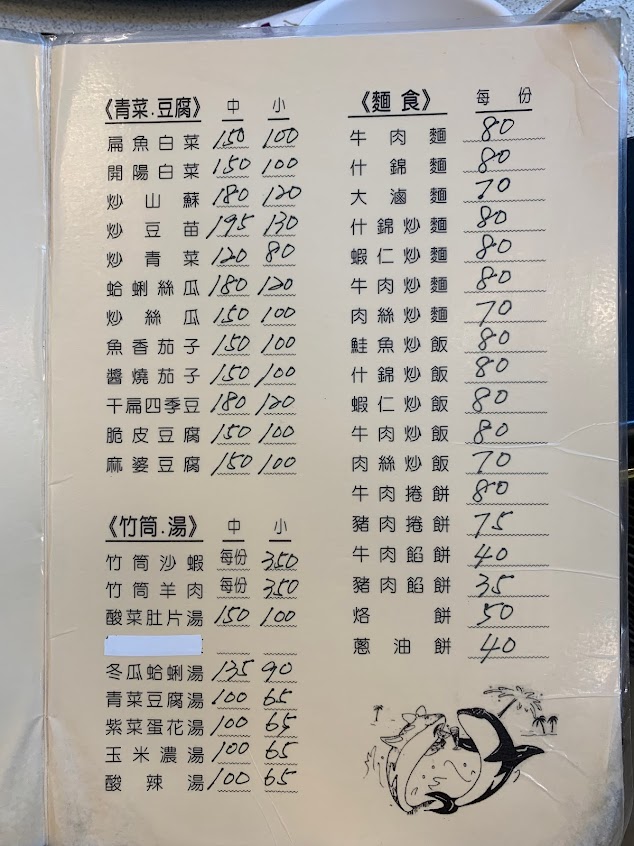 《青菜.豆腐》 中 小
扁魚白菜 150 100
開陽白菜 150 100
炒山蘇 180 120
炒豆苗 195 130
炒青菜 120 80
蛤蜊絲瓜 180 120
炒絲瓜 150 100
魚香茄子 150 100
醬燒茄子 150 100
干扁四季豆 180 120
脆皮豆腐 150 100
麻婆豆腐 150 100
《竹筒.湯》 中 小
竹筒沙蝦 每份 350
竹筒羊肉 每份 350
酸菜肚片湯 150 100
冬瓜蛤蜊湯 135 90
青菜豆腐湯 100 65
紫菜蛋花湯 100 65
玉米濃湯 100 65
酸辣湯 100 65
《麵食》 每份
牛肉麵 80
什錦麵 80
大滷麵 70
什錦炒麵 80
蝦仁炒麵 80
牛肉炒麵 80
肉絲炒麵 70
鮭魚炒飯 80
什錦炒飯 80
蝦仁炒飯 80
牛肉炒飯 80
肉絲炒飯 70
牛肉捲餅 80
豬肉捲餅 75
牛肉餡餅 40
豬肉餡餅 35
烙餅 50
蔥油餅 40